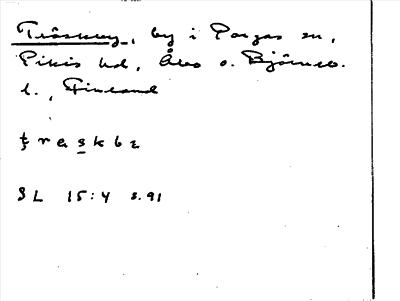 Träskby, by i Pargas sn,
Pikis hd, Åbo o. Björneb.
l., Finland
træskbι
SL 15:4 s. 91